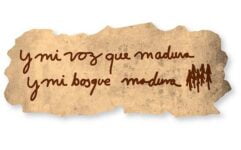 y mi voz que madura
y mi bosque madura